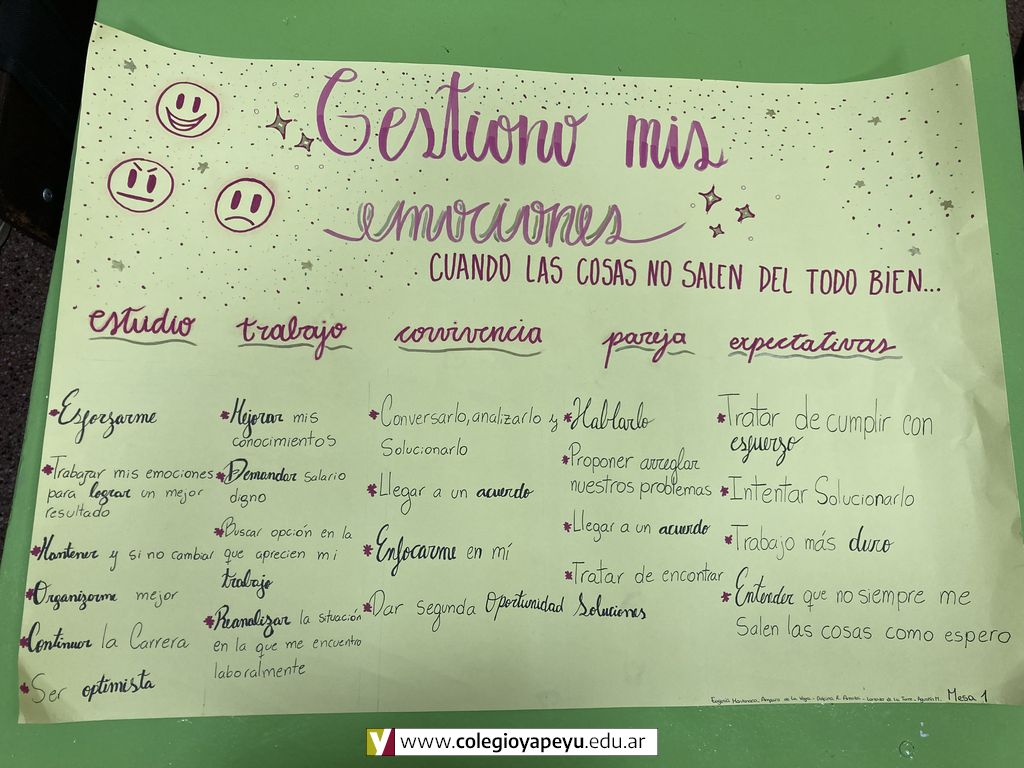 Gestiono mis
emociones
CUANDO LAS COSAS NO SALEN DEL TODO BIEN...
estudio
Esforzarme
Trabajar mis emociones
para lograr un mejor
resultado
Mantener y si no cambar
Organizarme mejor
Continuar la Carrera
Ser optimista
trabajo
Mejorar mis
conocimientos
Demandar salario
digno
Buscar opción en la
que aprecien mi
trabajo
Reanalizar la situación
en la que me encuentro
laboralmente
convivencia
Conversarlo, analizarlo y
Solucionarlo
Llegar a un acuerdo
Enfocarme en mí
Dar segunda Oportunidad
pareja
Hablarlo
Proponer arreglar
nuestros problemas
Llegar a un acuerdo
Tratar de encontrar
Soluciones
expectativas
Tratar de cumplir con
esfuerzo
Intentar Solucionarlo
Trabajo más duro
Entender que no siempre me
Salen las cosas como espero
Mesa 1
y www.colegioyapeyu.edu.ar